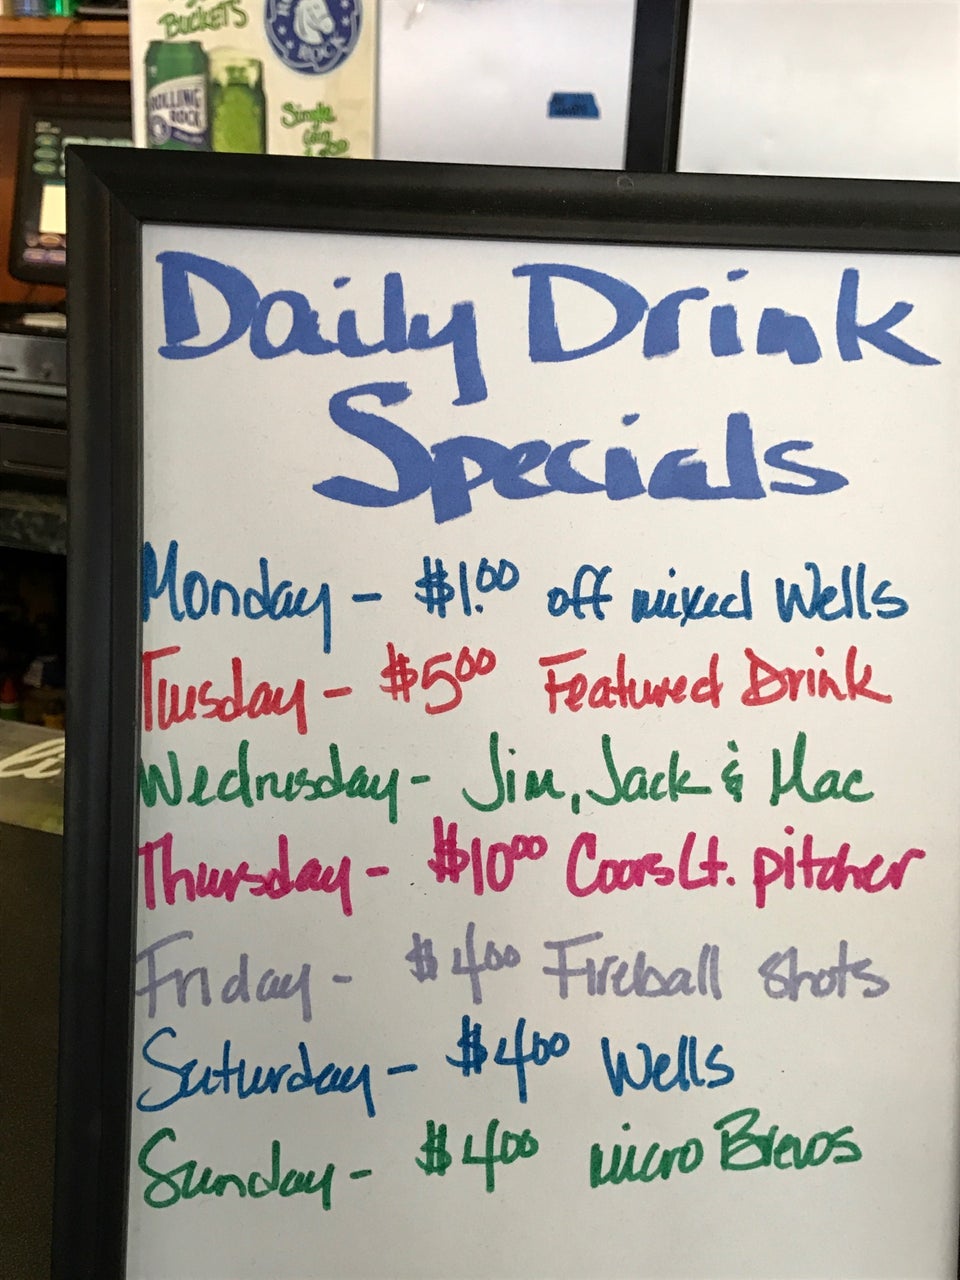 BUCKETS
ROCK
ROLLING
ROCK
Single
can
Daily Drink
Specials
Monday - $1.00 off mixed Wells
Tuesday - $5.00 Featured Drink
Wednesday - Jim, Jack & Mac
Thursday - $10.00 Coors Lt. pitcher
Friday - $4.00 Fireball shots
Saturday - $4.00 Wells
Sunday - $4.00 micro Brews